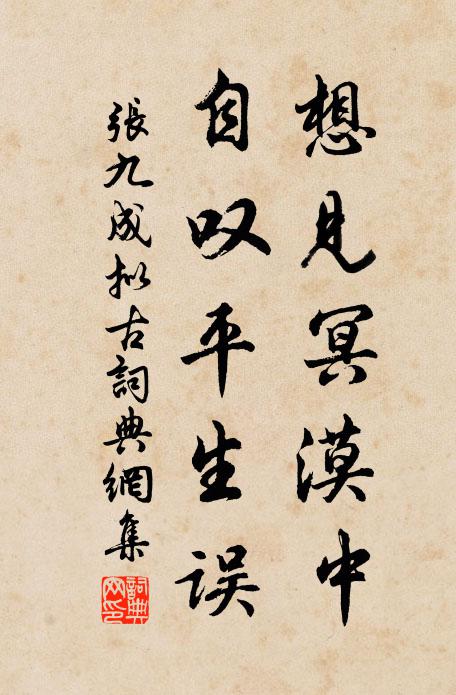 想見冥漠中
自叹平生误
張九成拟古詞典網集
詞典网印